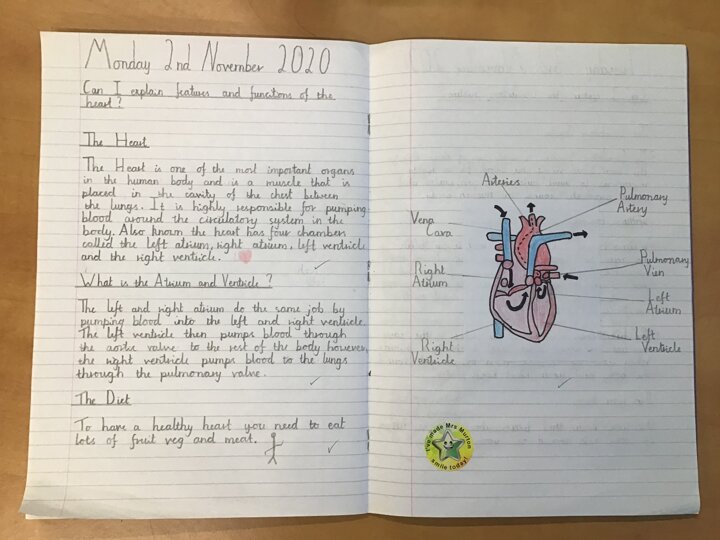 Monday 2nd November 2020
Can I explain features and functions of the
heart?
The Heart
The Heart is one of the most important organs
in the human body and is a muscle that is
placed in the cavity of the chest between
the lungs. It is highly responsible for pumping
blood around the circulatory system in the
body. Also known the heart has four chambers
called the left atrium, right atrium, left ventricle
and the right ventricle.
What is the Atrium and Ventricle?
The left and right atrium do the same job by
pumping blood into the left and right ventricle.
The left ventricle then pumps blood through
the aortic valve to the rest of the body however,
the right ventricle pumps blood to the lungs
through the pulmonary valve.
The Diet
To have a healthy heart you need to eat
lots of fruit veg and meat.
Arteries
Pulmonary
Artery
Vena
Cava
Pulmonary
Vien
Right
Atrium
Left
Atrium
Left
Ventricle
Right
Ventricle
I've made Mrs Murton
smile today!